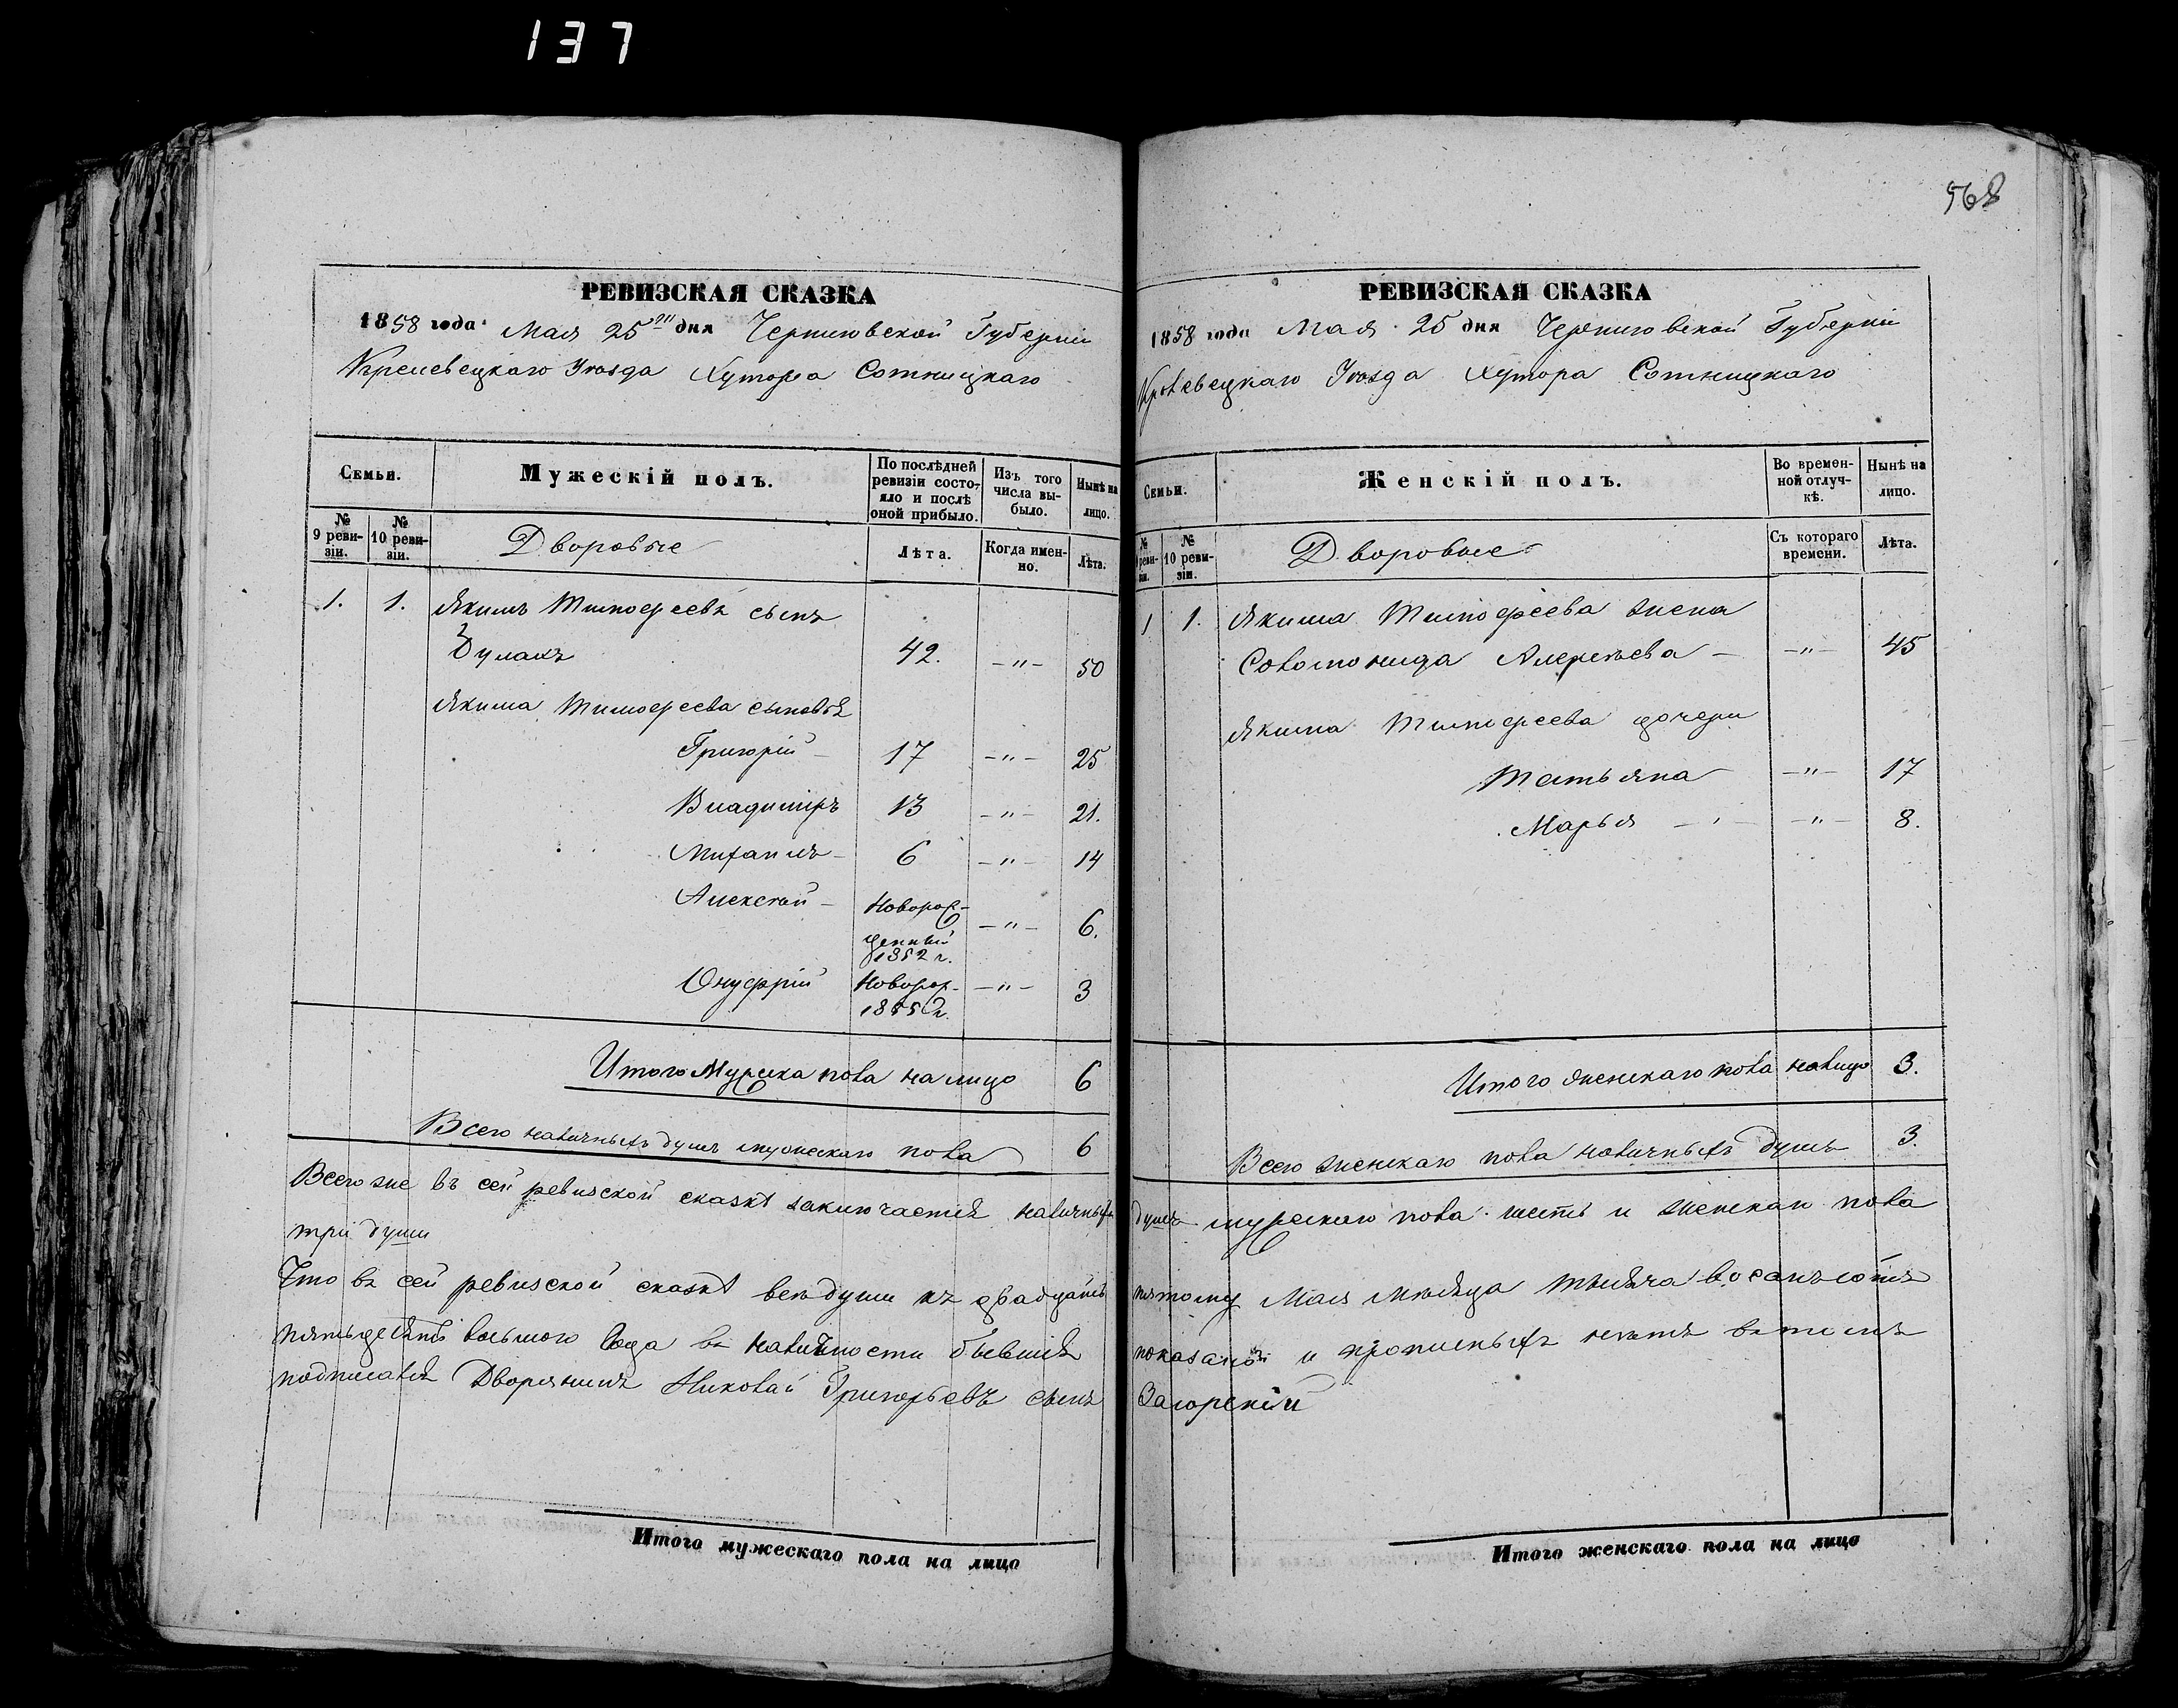 137
568
РЕВИЗСКАЯ СКАЗКА
1858 года Мая 25го дня Черниговской Губерніи
Кролевецкаго Уѣзда Хутора Сотницкаго
Семьи.
Мужескій полъ.
По послѣдней ревизіи состояло и послѣ оной прибыло.
Изъ того числа выбыло.
Нынѣ на лицо.
№ 9 ревизіи.
№ 10 ревизіи.
Дворовые
Лѣта.
Когда именно.
Лѣта.
1. 1. Якимъ Тимофеевъ сынъ
42. -"- 50
Якима Тимофеева сыновья
Григорій 17 -"- 25
Владиміръ 13 -"- 21.
Михаилъ 6 -"- 14
Алексѣй Новорож-
денный -"- 6.
1852 г.
Онуфрій Новорож. -"- 3
1855 г.
Итого Мужеска пола на лицо 6
Всего наличныхъ душъ мужескаго пола 6
РЕВИЗСКАЯ СКАЗКА
1858 года Мая 25 дня Черниговской Губерніи
Кролевецкаго Уѣзда Хутора Сотницкаго
Семьи.
Женскій полъ.
Во временной отлучкѣ.
Нынѣ на лицо.
№ 9 ревизіи.
№ 10 ревизіи.
Дворовые
Съ котораго времени.
Лѣта.
1 1. Якима Тимофеева жена
Соломонида Алексѣева -"- 45
Якима Тимофеева дочери
Татьяна -"- 17
Марья -"- 8.
Итого женскаго пола налицо 3.
Всего женскаго пола наличныхъ душъ 3.
Всего же въ сей ревизской сказкѣ заключается наличныхъ душъ мужескаго пола шесть и женскаго пола
три души
Что въ сей ревизской сказкѣ всѣ души къ двадцать пятому Мая мѣсяца тысяча восемьсотъ
пятьдесять восьмого года въ наличности бывшія показаны и прописныхъ нѣтъ въ томъ
подписался Дворянинъ Николай Григорьевъ сынъ Загорскій
Итого мужескаго пола на лицо
Итого женскаго пола на лицо